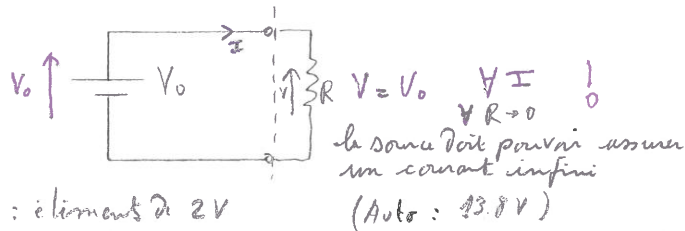 I
V₀ V₀ V R V = V₀ ∀ I !
∀ R → 0
la source doit pouvoir assurer
un courant infini
: éléments de 2V (Auto : 13.8V)